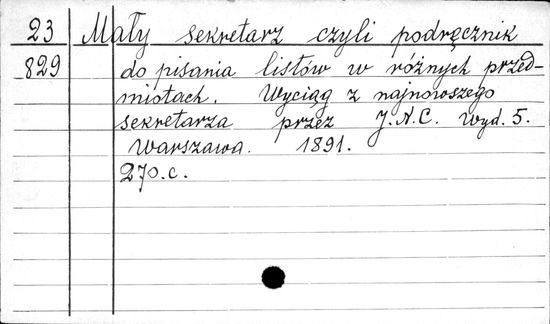 23 Mały sekretarz czyli podręcznik
829 do pisania listów w różnych przed-
miotach. Wyciąg z najnowszego
sekretarza przez J.A.C. Wyd. 5.
Warszawa. 1891.
270.c.